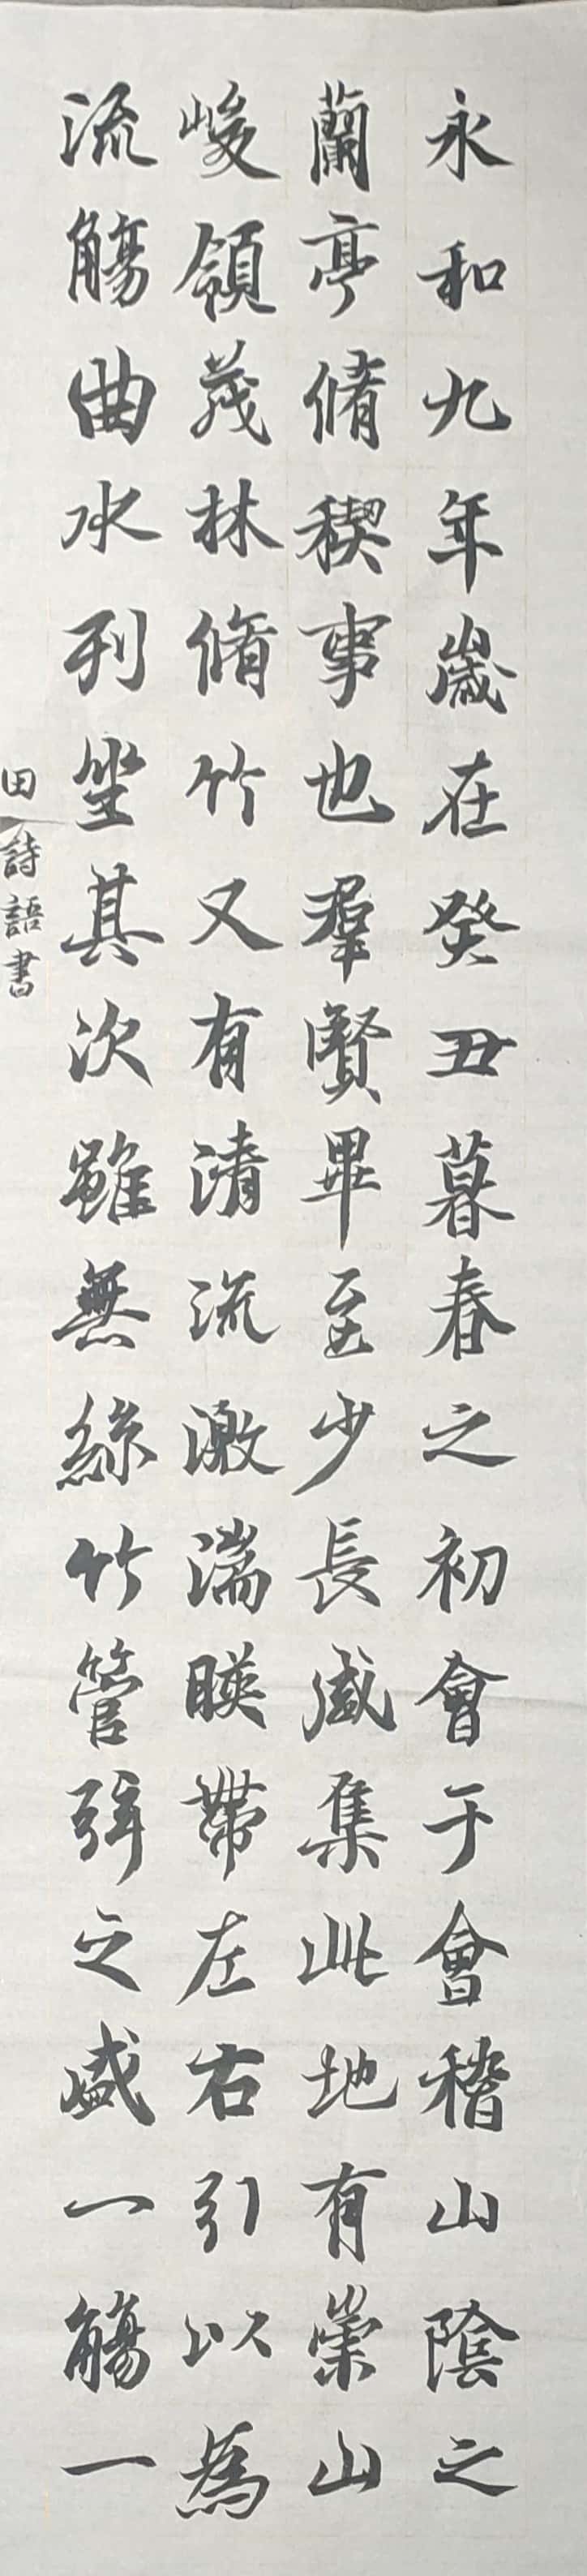 永和九年歲在癸丑暮春之初會于會稽山陰之
蘭亭脩稧事也羣賢畢至少長咸集此地有崇山
峻領茂林脩竹又有清流激湍暎帶左右引以為
流觴曲水列坐其次雖無絲竹管弦之盛一觴一
田詩語書